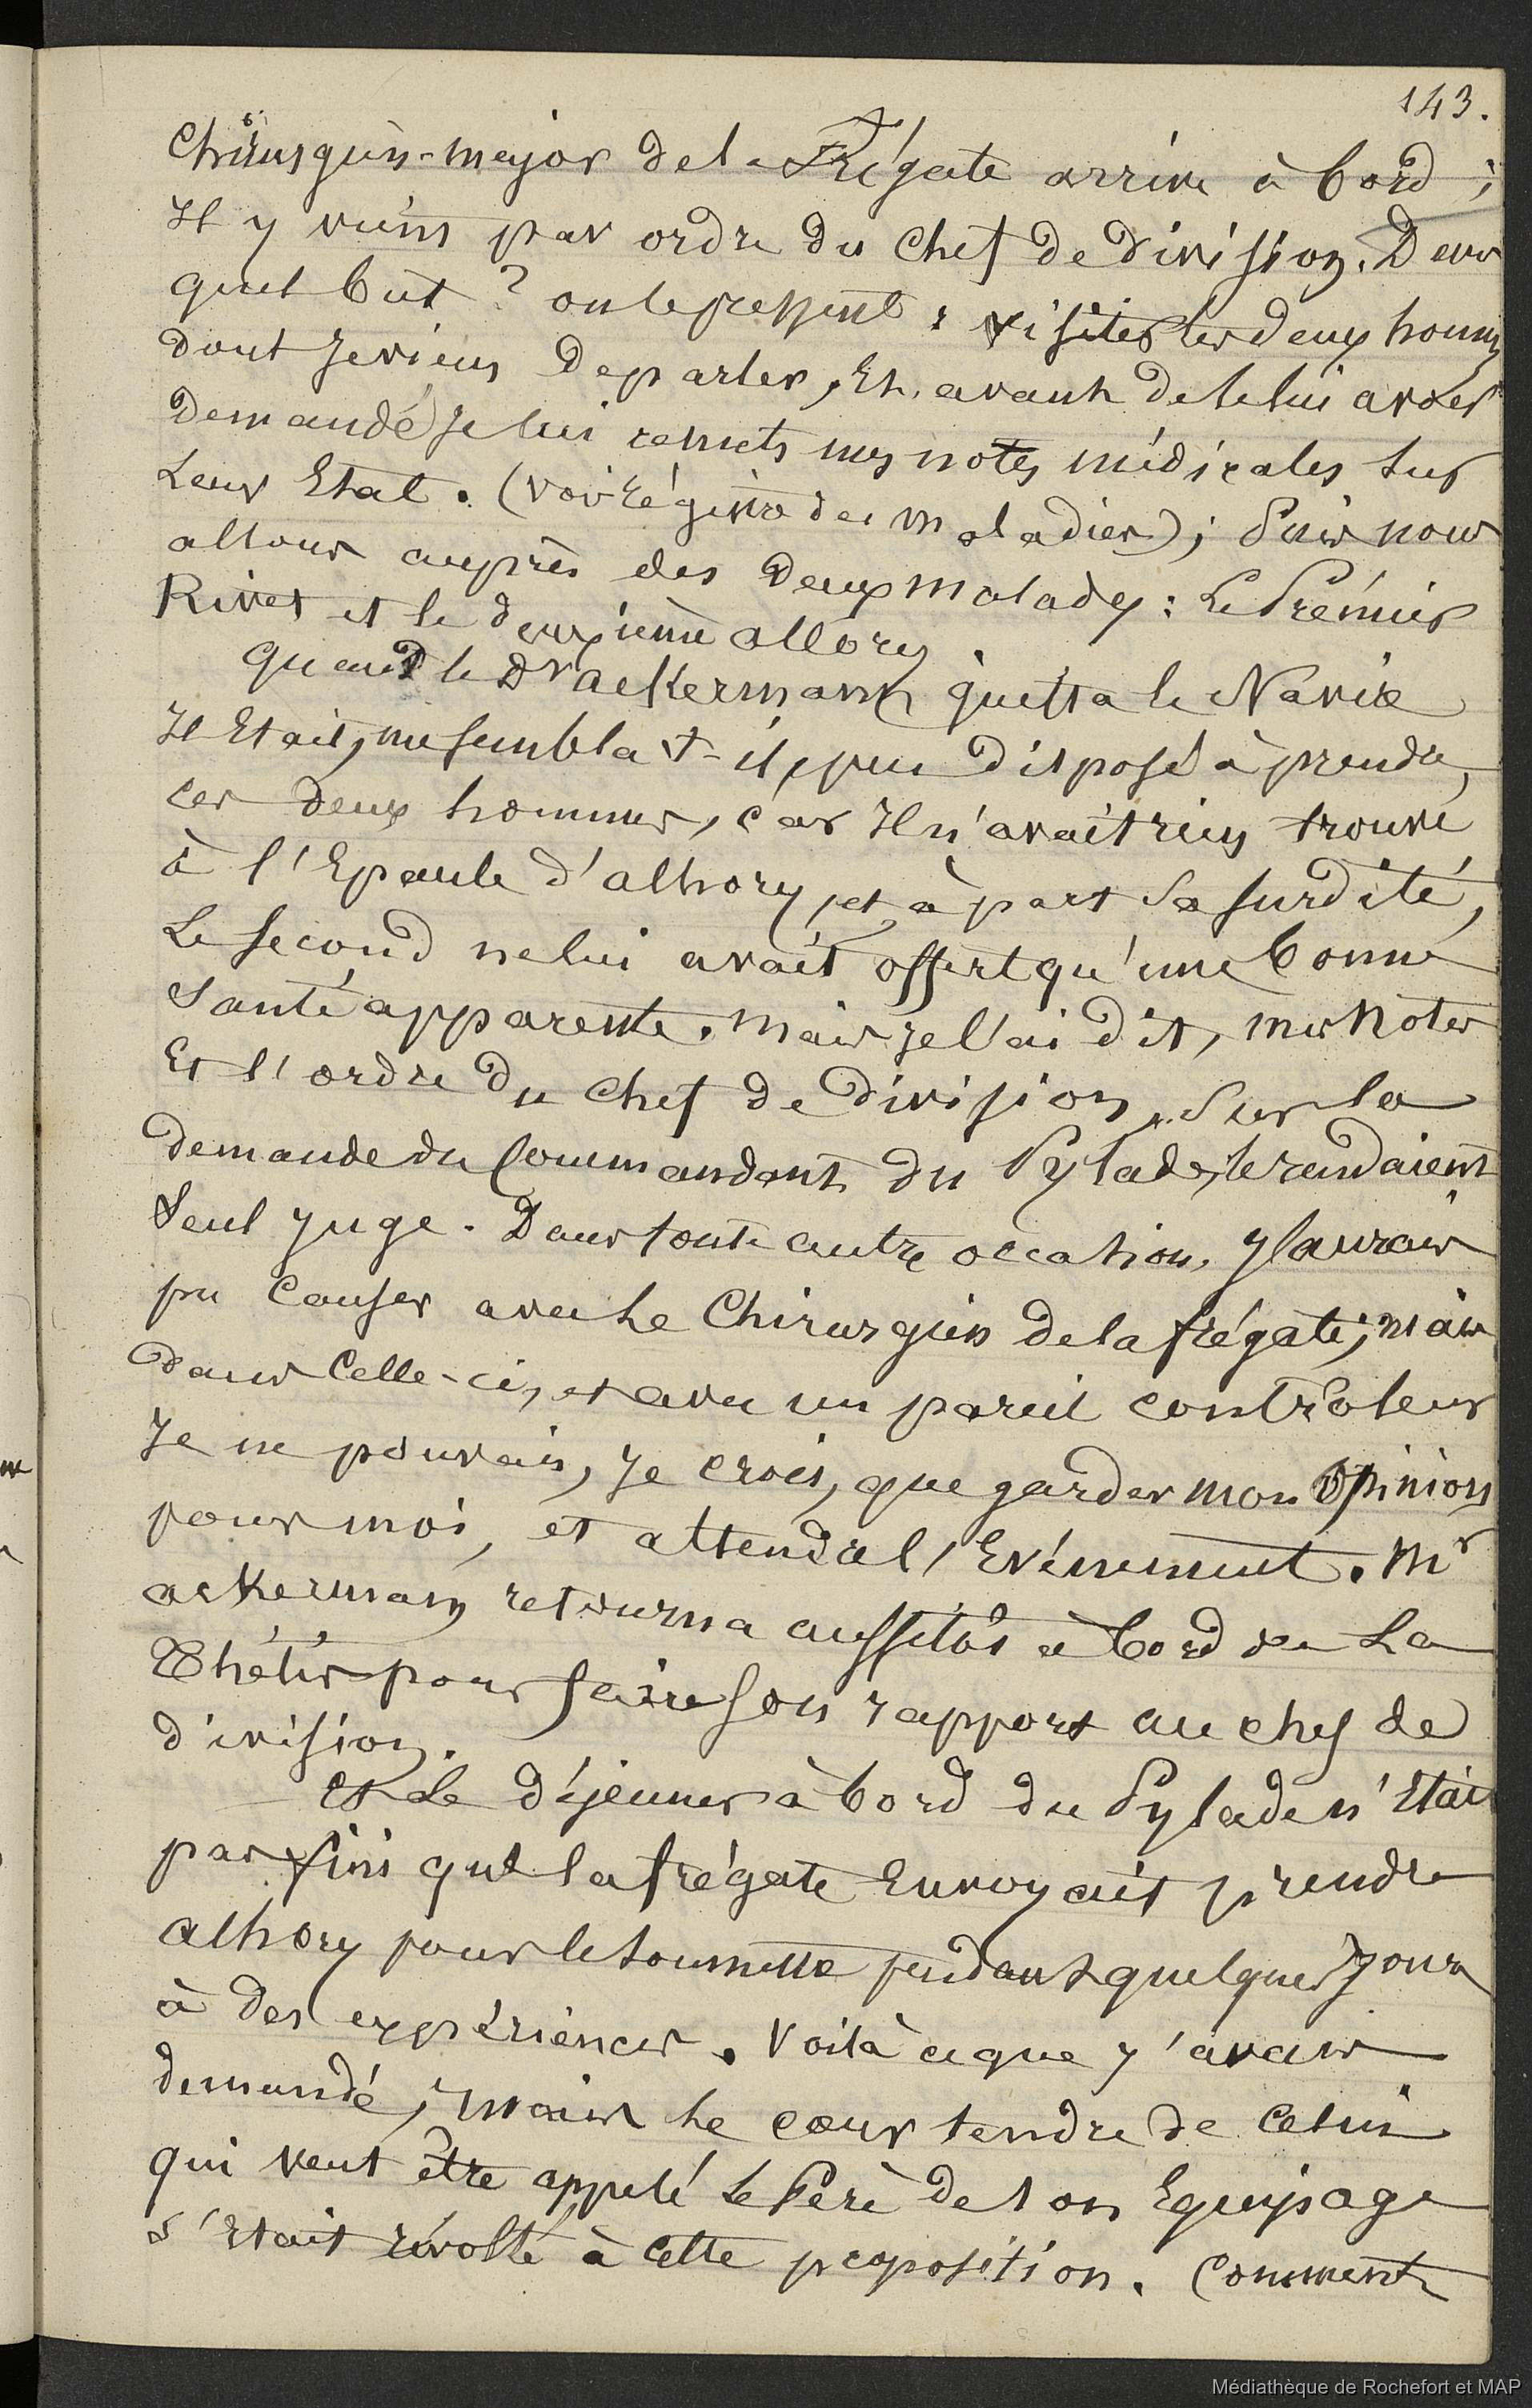 143.
Chirurgien-major de la Frégate arrive à bord ;
Il y vient par ordre du Chef de division. Dans
quel but ? on le pressent : visiter les deux hommes
dont je viens de parler, Et, avant de le lui avoir
demandé, je lui remets mes notes médicales sur
Leur Etat. (voir régistre des maladies) ; Puis nous
allons auprès des deux malades : Le Premier
Rivet et le deuxième allory.
Quand le Dr ackermann quitta le Navire
Il Etait, me sembla-t-il, peu disposé à prendre
ces deux hommes, car Il n'avait rien trouvé
à l'Epaule d'alhory, et, à part Sa surdité,
Le second ne lui avait offert qu'une bonne
Santé apparente. Mais je l'ai dit, mes Notes
Et l'ordre du chef de Division, Sur la
demande du Commandant du Pylade, le rendaient
Seul juge. Dans toute autre occation, j'aurais
pu Causer avec Le Chirurgien de la frégate ; mais
dans Celle-ci, et avec un pareil contrôleur
Je ne pouvais, je crois, que garder mon Opinion
pour moi, et attendre l'Evénement. Mr
ackermann retourna aussitôt à bord de La
Thétis pour faire son rapport au chef de
division.
Le déjeuner à bord du Pylade n'était
pas fini que la frégate Envoyait prendre
alhory pour le soumettre pendant quelques jours
à des expériences. Voilà ce que j'avais
demandé ; mais Le cœur tendre de Celui
qui veut être appelé Le Père de son Equipage
s'était révolté à Cette proposition. Comment
Médiathèque de Rochefort et MAP